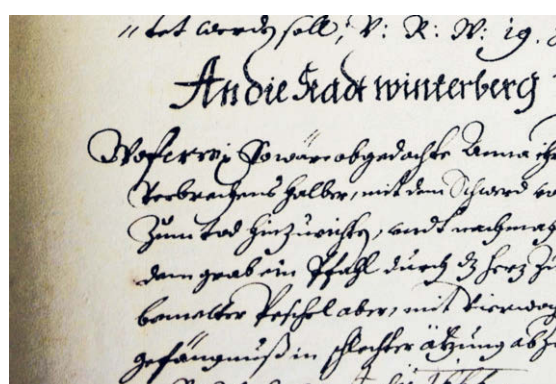 tet werden soll, V: R: W: 19.
An die Stadt winterberg
Wofern obgedachte Anna ihr
Verbrechens halber, mit dem Schwerd vo
Zum tod hinzurichten, undt nachmah
dem grab ein Pfahl durch dz herz zu
bemelter Peschel aber, mit vierwoch
gefängnuß in schlechter äzung abzu